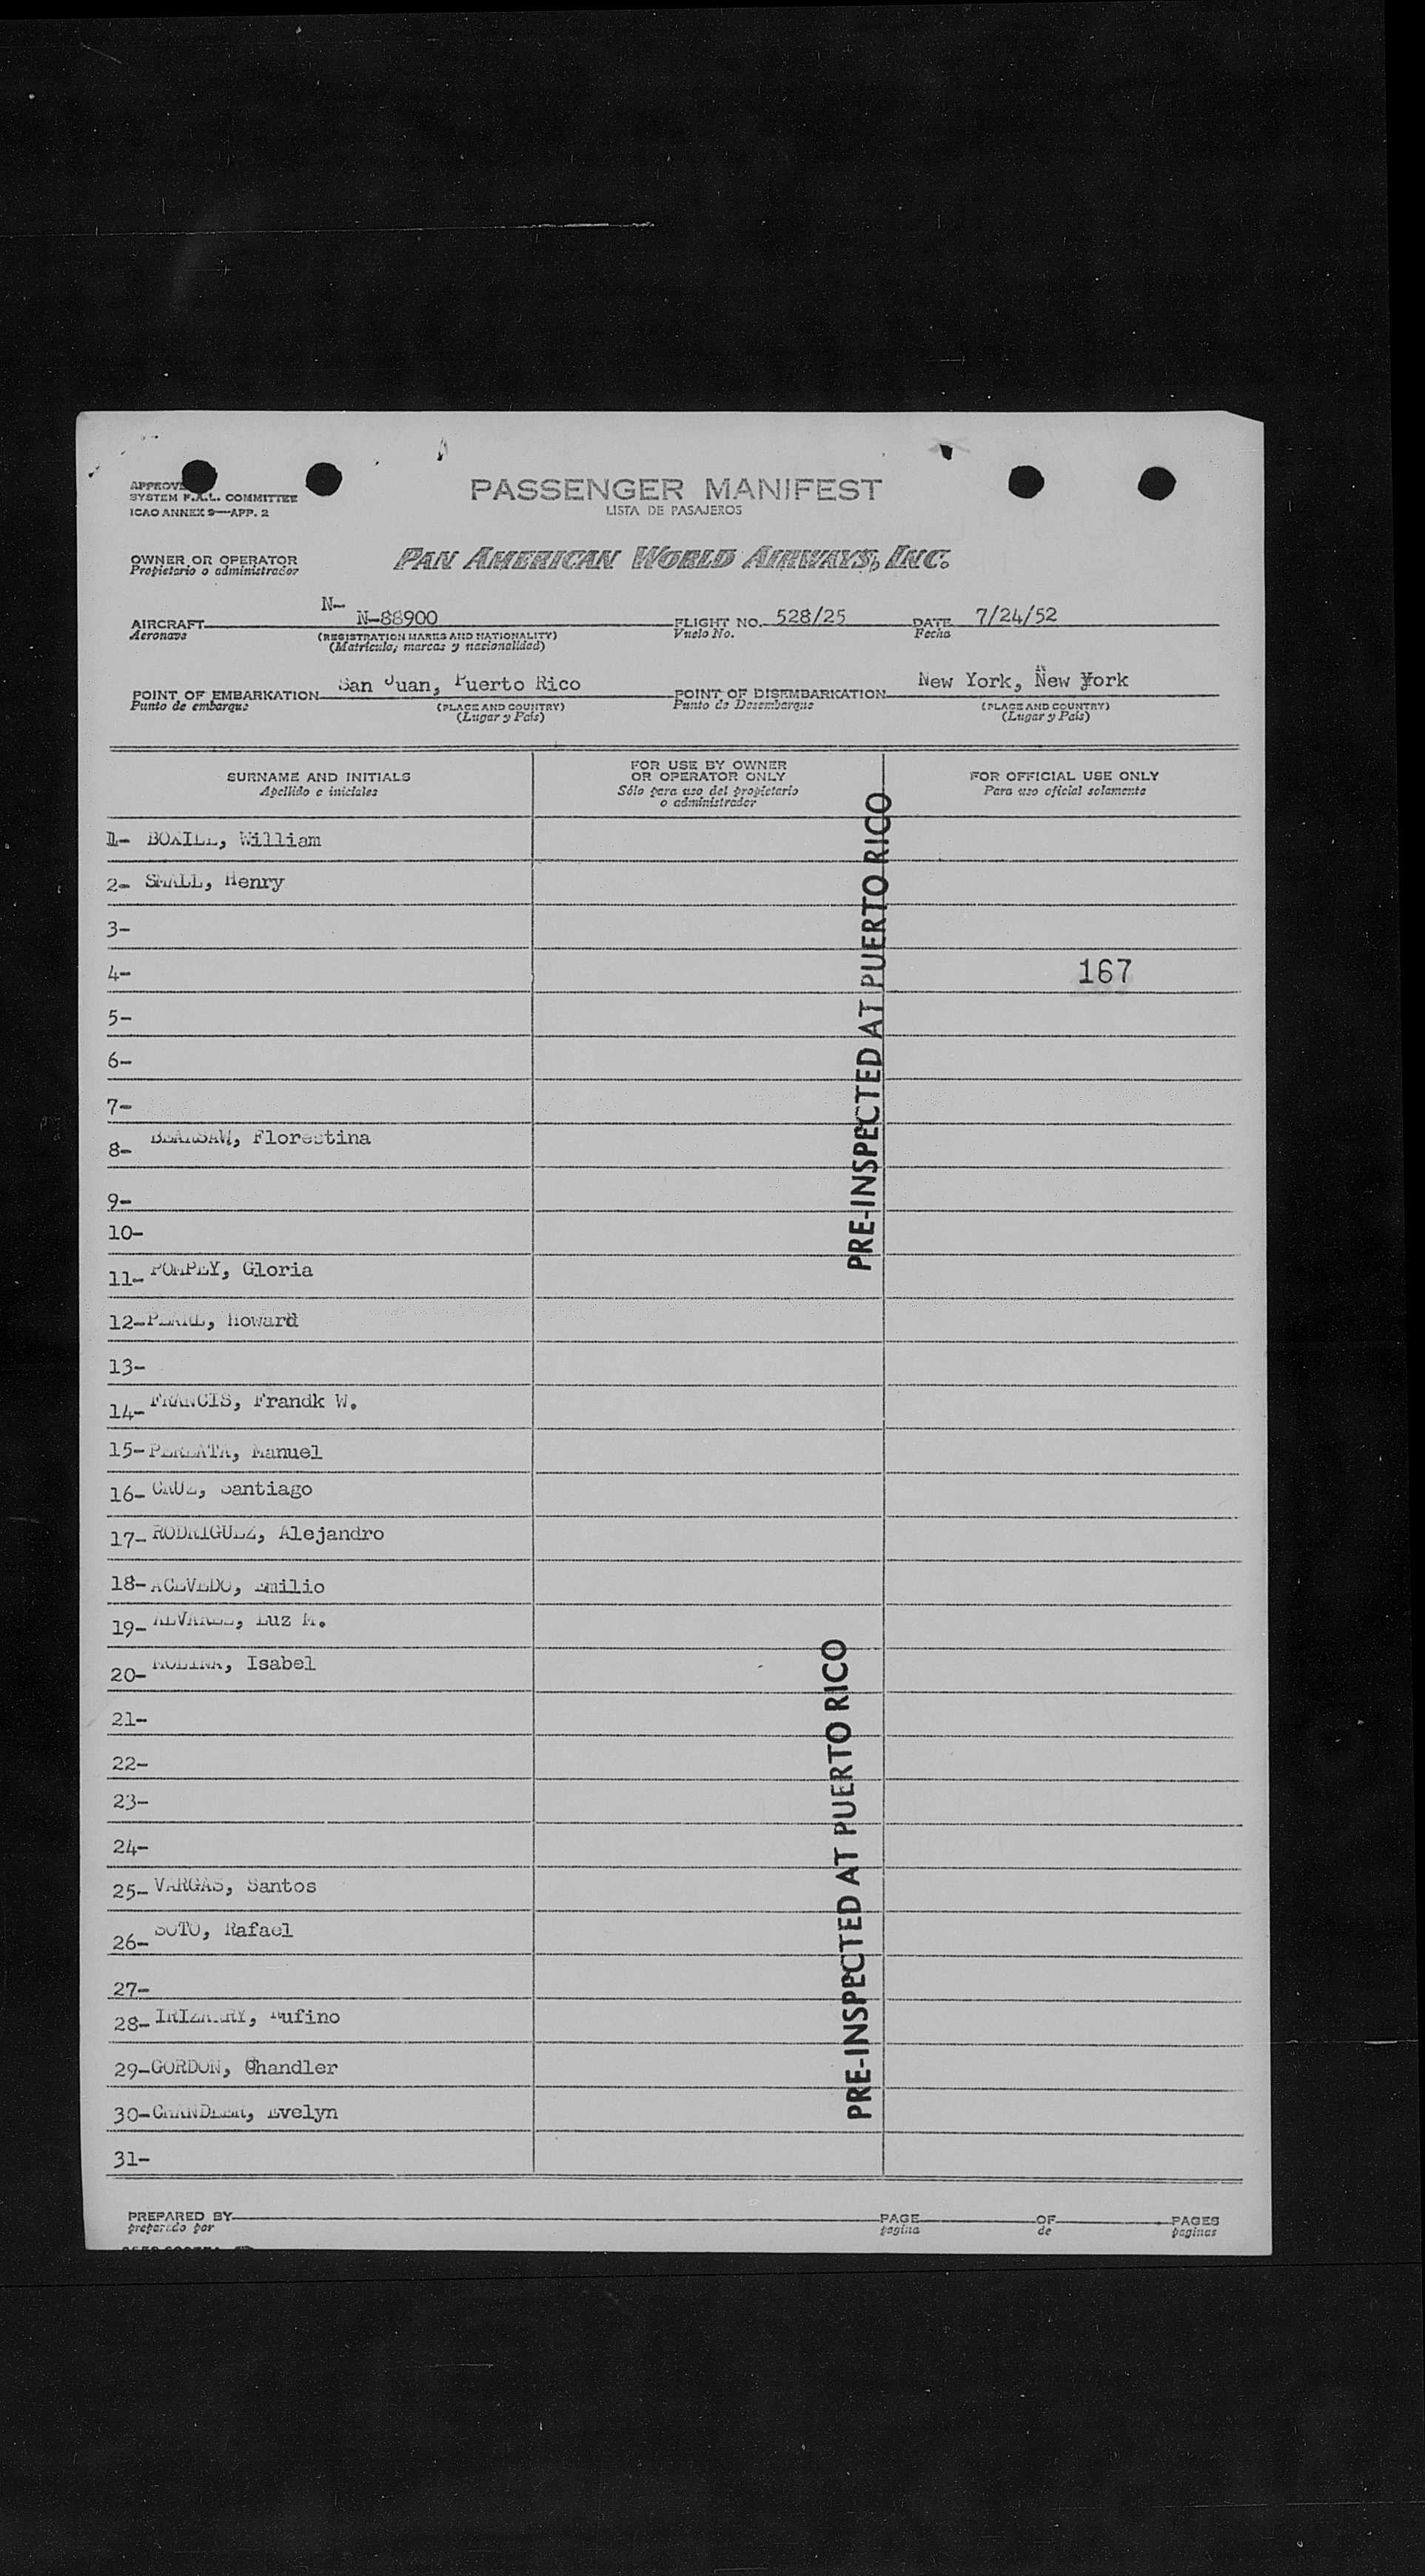 APPROVE
SYSTEM F.A.L. COMMITTEE
ICAO ANNEX 9—APP. 2
PASSENGER MANIFEST
LISTA DE PASAJEROS
OWNER OR OPERATOR
Propietario o administrador
PAN AMERICAN WORLD AIRWAYS, INC.
N-
AIRCRAFT N-88900 FLIGHT NO. 528/25 DATE 7/24/52
Aeronave (REGISTRATION MARKS AND NATIONALITY) Vuelo No. Fecha
(Matricula, marcas y nacionalidad)
POINT OF EMBARKATION San Juan, Puerto Rico POINT OF DISEMBARKATION New York, New York
Punto de embarque (PLACE AND COUNTRY) Punto de Desembarque (PLACE AND COUNTRY)
(Lugar y País) (Lugar y País)
SURNAME AND INITIALS
Apellido e iniciales
FOR USE BY OWNER
OR OPERATOR ONLY
Sólo para uso del propietario
o administrador
FOR OFFICIAL USE ONLY
Para uso oficial solamente
1- BOXILL, William
2- SMALL, Henry
3-
4- 167
5-
6-
7-
8- Florestina
9-
10-
11- POMPEY, Gloria
12- Howard
13-
14- FRANCIS, Frandk W.
15- Manuel
16- CRUZ, Santiago
17- RODRIGUEZ, Alejandro
18- ACEVEDO, Emilio
19- ALVAREZ, Luz M.
20- MOLINA, Isabel
21-
22-
23-
24-
25- VARGAS, Santos
26- SOTO, Rafael
27-
28- IRIZARRY, Rufino
29- GORDON, Chandler
30- CHANDLER, Evelyn
31-
PRE-INSPECTED AT PUERTO RICO
PRE-INSPECTED AT PUERTO RICO
PREPARED BY PAGE OF PAGES
preparado por pagina de paginas